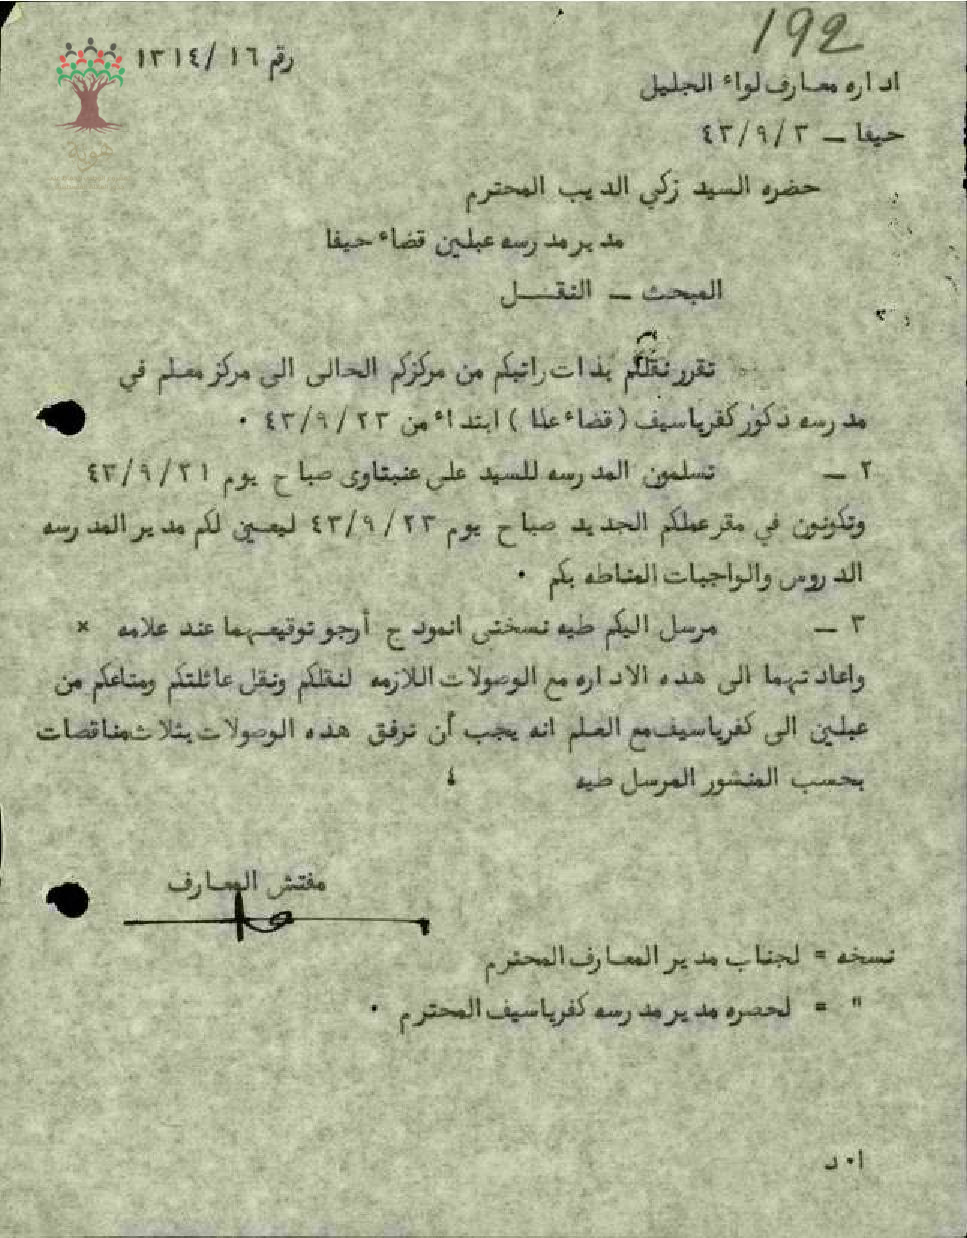 192
رقم ١٦/ ١٣١٤
اداره معارف لواء الجليل
حيفا – ٣/ ٩/ ٤٣
حضره السيد زكي الديب المحترم
مدير مدرسه عبلين قضاء حيفا
المبحث – النقــل
تقرر نقلكم بذات راتبكم من مركزكم الحالى الى مركز معلم في
مدرسه ذكور كفرياسيف (قضاء عكا) ابتداء من ٢٣/ ٩/ ٤٣ ٠
٢ – تسلمون المدرسه للسيد على عنبتاوى صباح يوم ٢١/ ٩/ ٤٣
وتكونون في مقر عملكم الجديد صباح يوم ٢٣/ ٩/ ٤٣ ليعين لكم مدير المدرسه
الدروس والواجبات المناطه بكم ٠
٣ – مرسل اليكم طيه نسختى انموذج أرجو توقيعهما عند علامه ×
واعادتهما الى هذه الاداره مع الوصولات اللازمه لنقلكم ونقل عائلتكم ومتاعكم من
عبلين الى كفرياسيف مع العلم انه يجب أن ترفق هذه الوصولات بثلاث مناقصات
بحسب المنشور المرسل طيه
مفتش المعارف
نسخه = لجناب مدير المعارف المحترم
" = لحضره مدير مدرسه كفرياسيف المحترم ٠
ا٠د
هوية